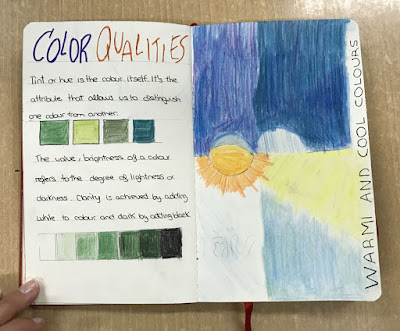 COLOR QUALITIES
Tint or hue is the colour itself. It's the
attribute that allows us to distinguish
one colour from another.
The value, brightness of a colour
refers to the degree of lightness or
darkness. Clarity is achieved by adding
while to colour and dark by adding black
WARM AND COOL COLOURS